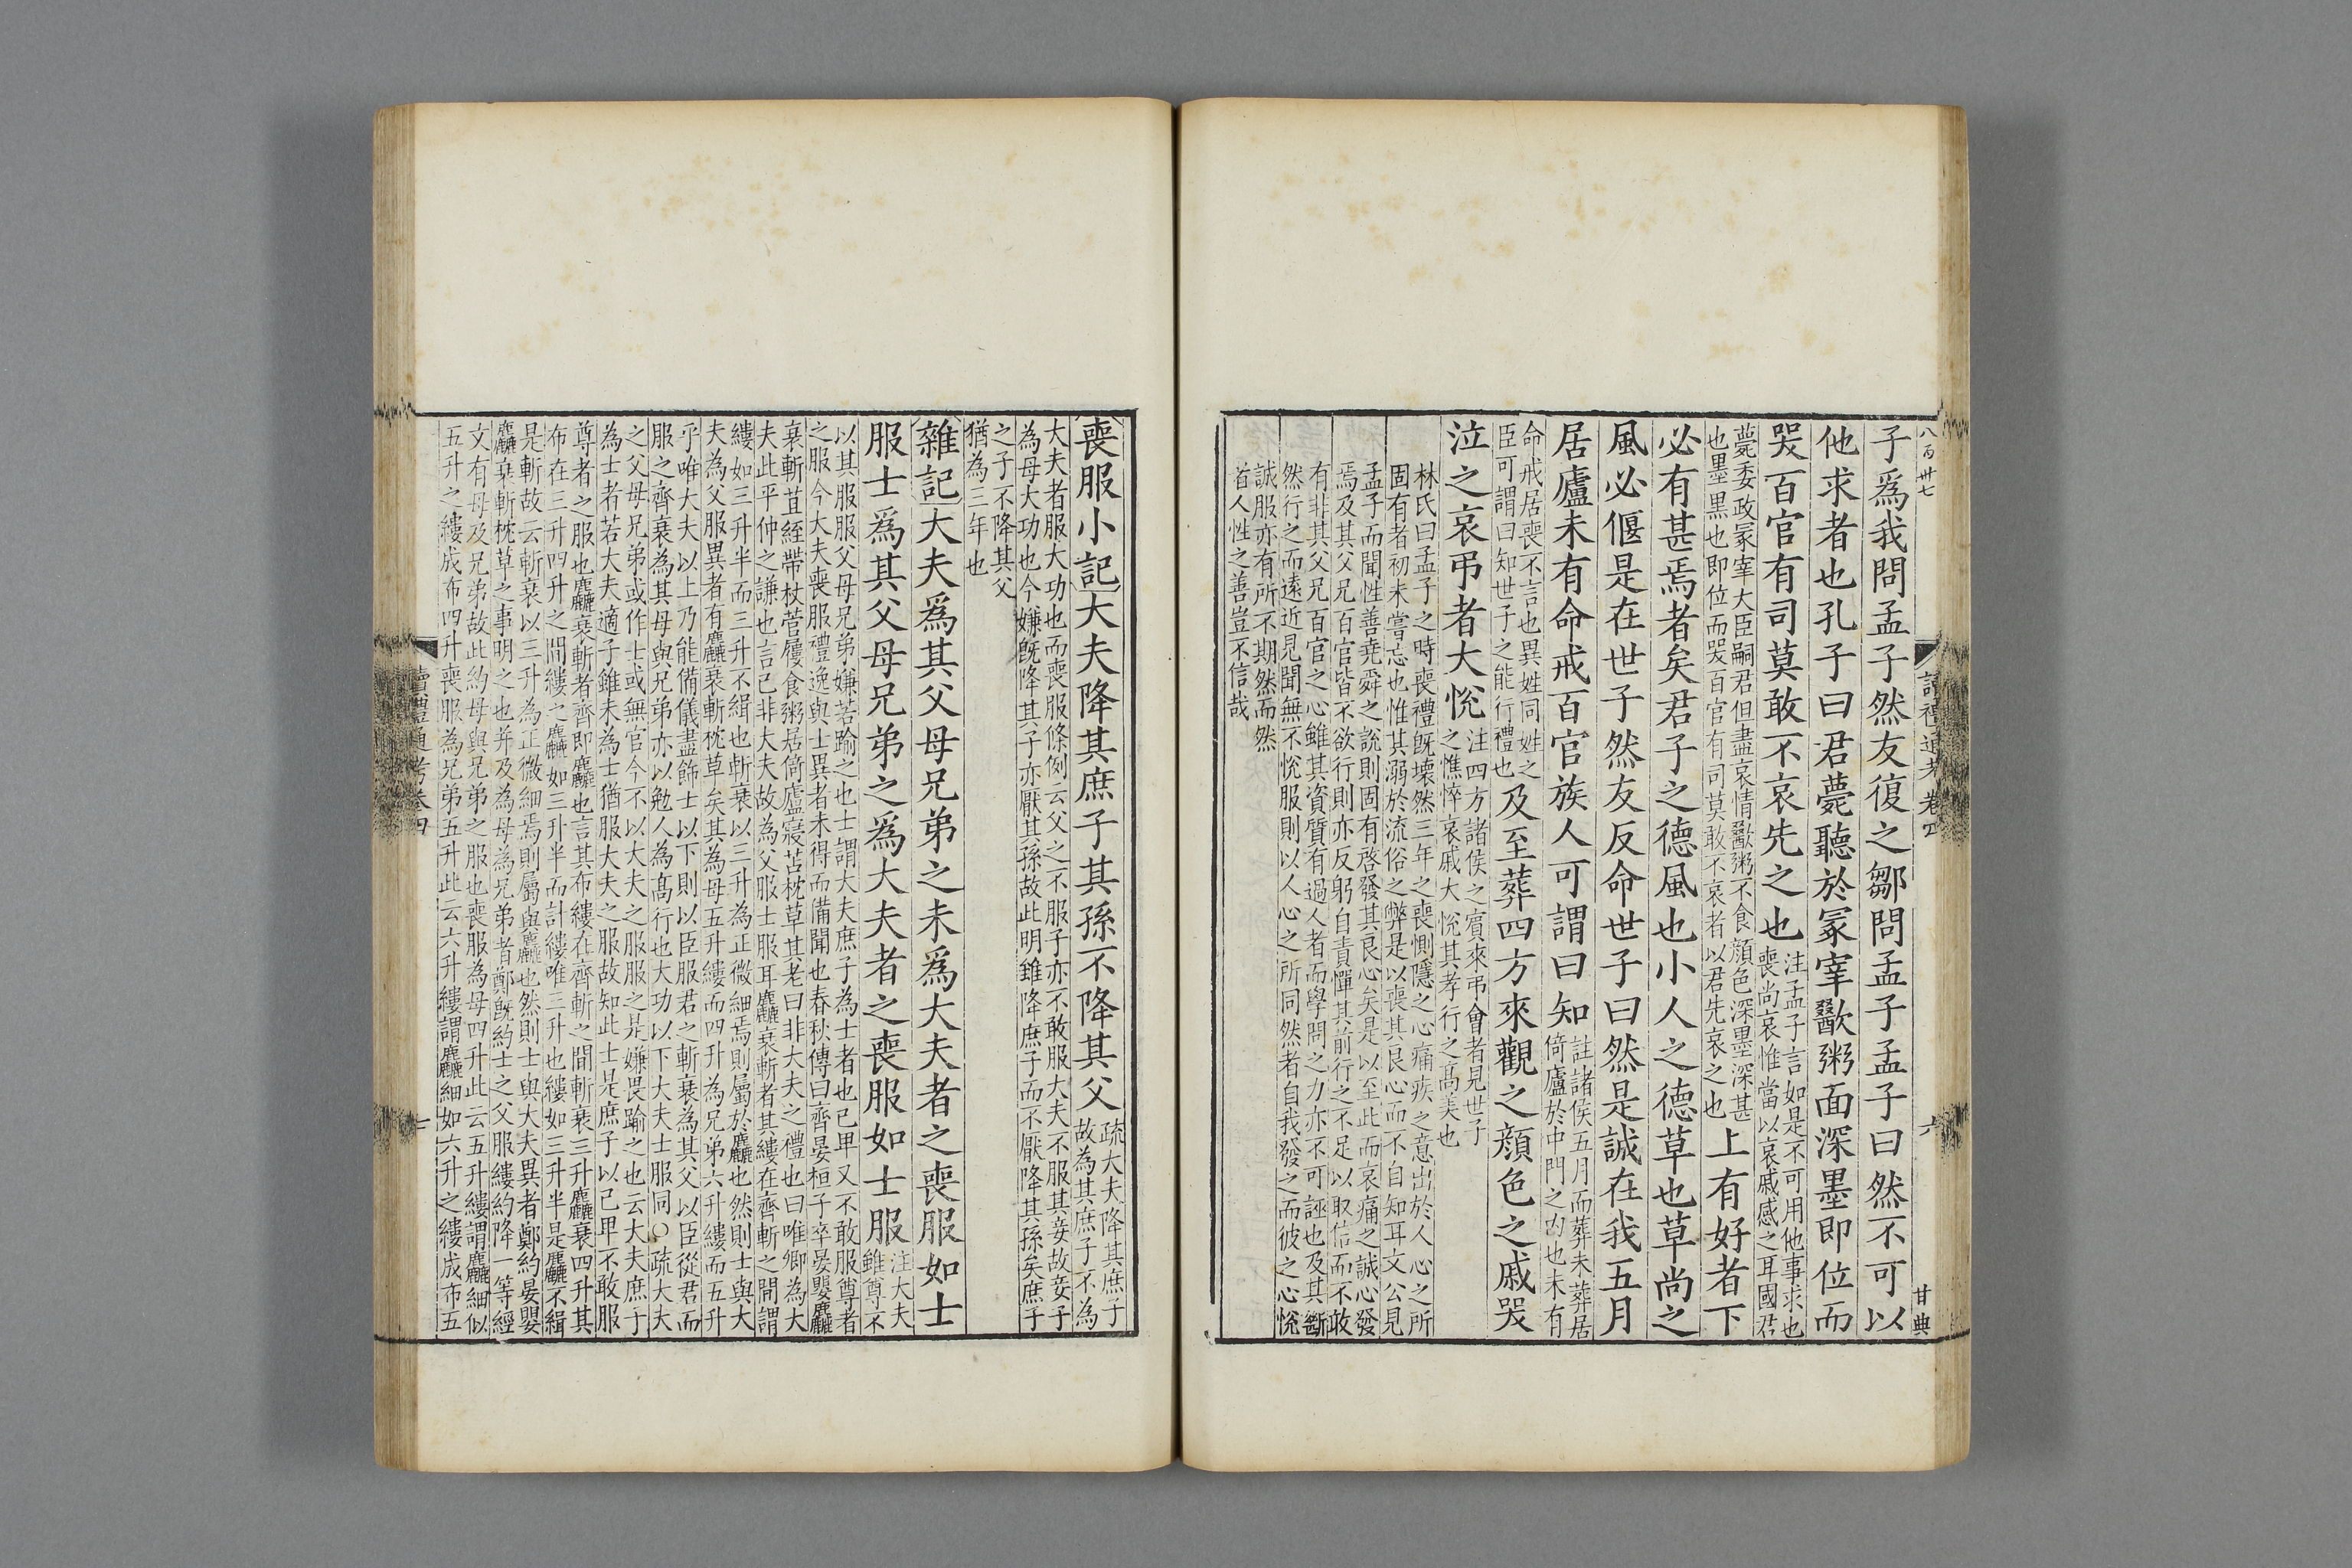 八百卅七
讀禮通考卷四
六
甘典
子爲我問孟子然友復之鄒問孟子孟子曰然不可以
他求者也孔子曰君薨聽於冢宰歠粥面深墨即位而
哭百官有司莫敢不哀先之也
注孟子言如是不可用他事求也
喪尚哀惟當以哀戚感之耳國君
薨委政冢宰大臣嗣君但盡哀情歠粥不食顔色深墨深甚
也墨黒也即位而哭百官有司莫敢不哀者以君先哀之也
上有好者下
必有甚焉者矣君子之德風也小人之德草也草尚之
風必偃是在世子然友反命世子曰然是誠在我五月
居廬未有命戒百官族人可謂曰知
註諸侯五月而葬未葬居
倚廬於中門之内也未有
命戒居喪不言也異姓同姓之
臣可謂曰知世子之能行禮也
及至葬四方來觀之顔色之戚哭
泣之哀弔者大悅
注四方諸侯之賓來弔會者見世子
之憔悴哀戚大悅其孝行之髙美也
林氏曰孟子之時喪禮旣壊然三年之喪惻隱之心痛疾之意出於人心之所
固有者初未嘗忘也惟其溺於流俗之弊是以喪其良心而不自知耳文公見
孟子而聞性善堯舜之說則固有啓發其良心矣是以至此而哀痛之誠心發
焉及其父兄百官皆不欲行則亦反躬自責憚其前行之不足以取信而不敢
有非其父兄百官之心雖其資質有過人者而學問之力亦不可誣也及其斷
然行之而逺近見聞無不悅服則以人心之所同然者自我發之而彼之心悅
誠服亦有所不期然而然
者人性之善豈不信哉
喪服小記大夫降其庶子其孫不降其父
疏大夫降其庶子
故為其庶子不為
大夫者服大功也而喪服條例云父之不服子亦不敢服大夫不服其妾故妾子
為母大功也今嫌旣降其子亦厭其孫故此明雖降庶子而不厭降其孫矣庶子
之子不降其父
猶為三年也
雜記大夫爲其父母兄弟之未爲大夫者之喪服如士
服士爲其父母兄弟之爲大夫者之喪服如士服
注大夫
雖尊不
以其服服父母兄弟嫌若踰之也士謂大夫庶子為士者也已卑又不敢服尊者
之服今大夫喪服禮逸與士異者未得而備聞也春秋傳曰齊晏桓子卒晏嬰麤
衰斬苴絰帶杖菅屨食粥居倚廬寢苫枕草其老曰非大夫之禮也曰唯卿為大
夫此平仲之謙也言已非大夫故為父服士服耳麤衰斬者其縷在齊斬之間謂
縷如三升半而三升不緝也斬衰以三升為正微細焉則屬於麤也然則士與大
夫為父服異者有麤衰斬枕草矣其為母五升縷而四升為兄弟六升縷而五升
乎唯大夫以上乃能備儀盡飾士以下則以臣服君之斬衰為其父以臣從君而
服之齊衰為其母與兄弟亦以勉人為髙行也大功以下大夫士服同○疏大夫
之父母兄弟或作士或無官今不以大夫之服服之是嫌畏踰之也云大夫庶子
為士者若大夫適子雖未為士猶服大夫之服故知此士是庶子以已卑不敢服
尊者之服也麤衰斬者齊即麤也言其布縷在齊斬之間斬衰三升麤衰四升其
布在三升四升之間縷之麤如三升半而計縷唯三升也縷如三升半是麤不緝
是斬故云斬衰以三升為正微細焉則屬與麤也然則士與大夫異者鄭約晏嬰
麤衰斬枕草之事明之也并及為母為兄弟者鄭旣約士之父服縷約降一等經
文有母及兄弟故此約母與兄弟之服也喪服為母四升此云五升縷謂麤細似
五升之縷成布四升喪服為兄弟五升此云六升縷謂麤細如六升之縷成布五
讀禮通考卷四
七